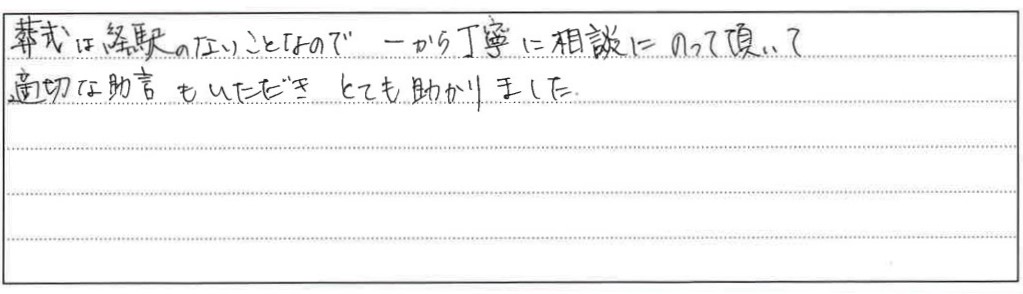 葬式は経験のないことなので 一から丁寧に相談にのって頂いて
適切な助言もいただき とても助かりました.